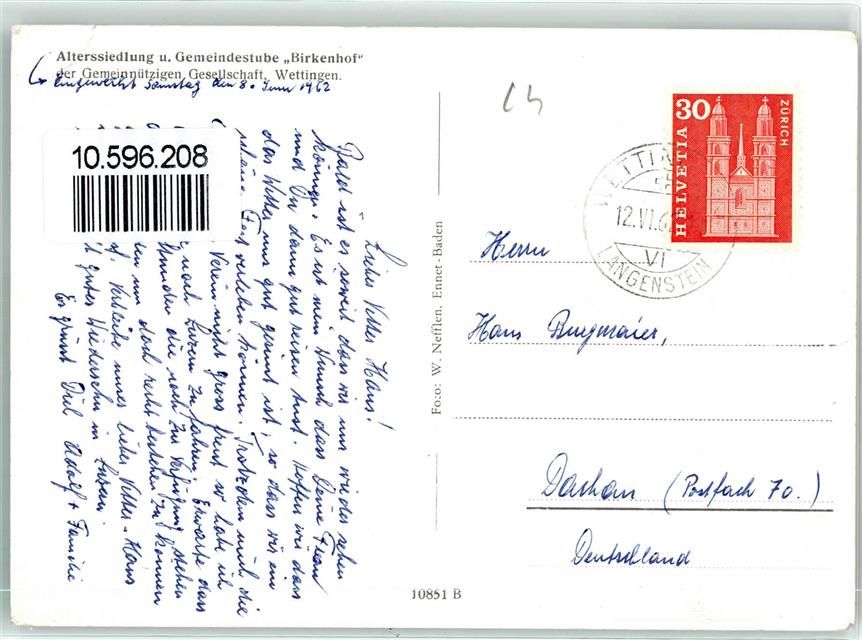 Alterssiedlung u. Gemeindestube „Birkenhof"
der Gemeinnützigen Gesellschaft, Wettingen.
Eingeweiht Samstag den 8. Juni 1962
10.596.208
Lieber Vetter Hans!
Bald ist es soweit dass wir uns wieder sehen
können. Es ist mein Wunsch dass Deine Frau
und Du dann gut reisen tust. Hoffen wir dass
das Wetter uns gut gesinnt ist, so dass wir ein
Fest erleben können. Trotzdem mich die
Verein nicht gross freut so habe ich
nach Luzern zu fahren. Erwarte dass
Stunden die noch zur Verfügung stehen
um uns doch recht zu können
Verbleibe unser lieber Vetter Hans
gutes Wiedersehn in Luzern.
Es grüsst Dich Adolf + Familie
Foto: W. Nefflen, Ennet-Baden
10851 B
HELVETIA
30
ZÜRICH
WETTINGEN
12.VI.6
VI
LANGENSTEIN
Herrn
Hans Burgmaier,
Dachau (Postfach 70.)
Deutschland